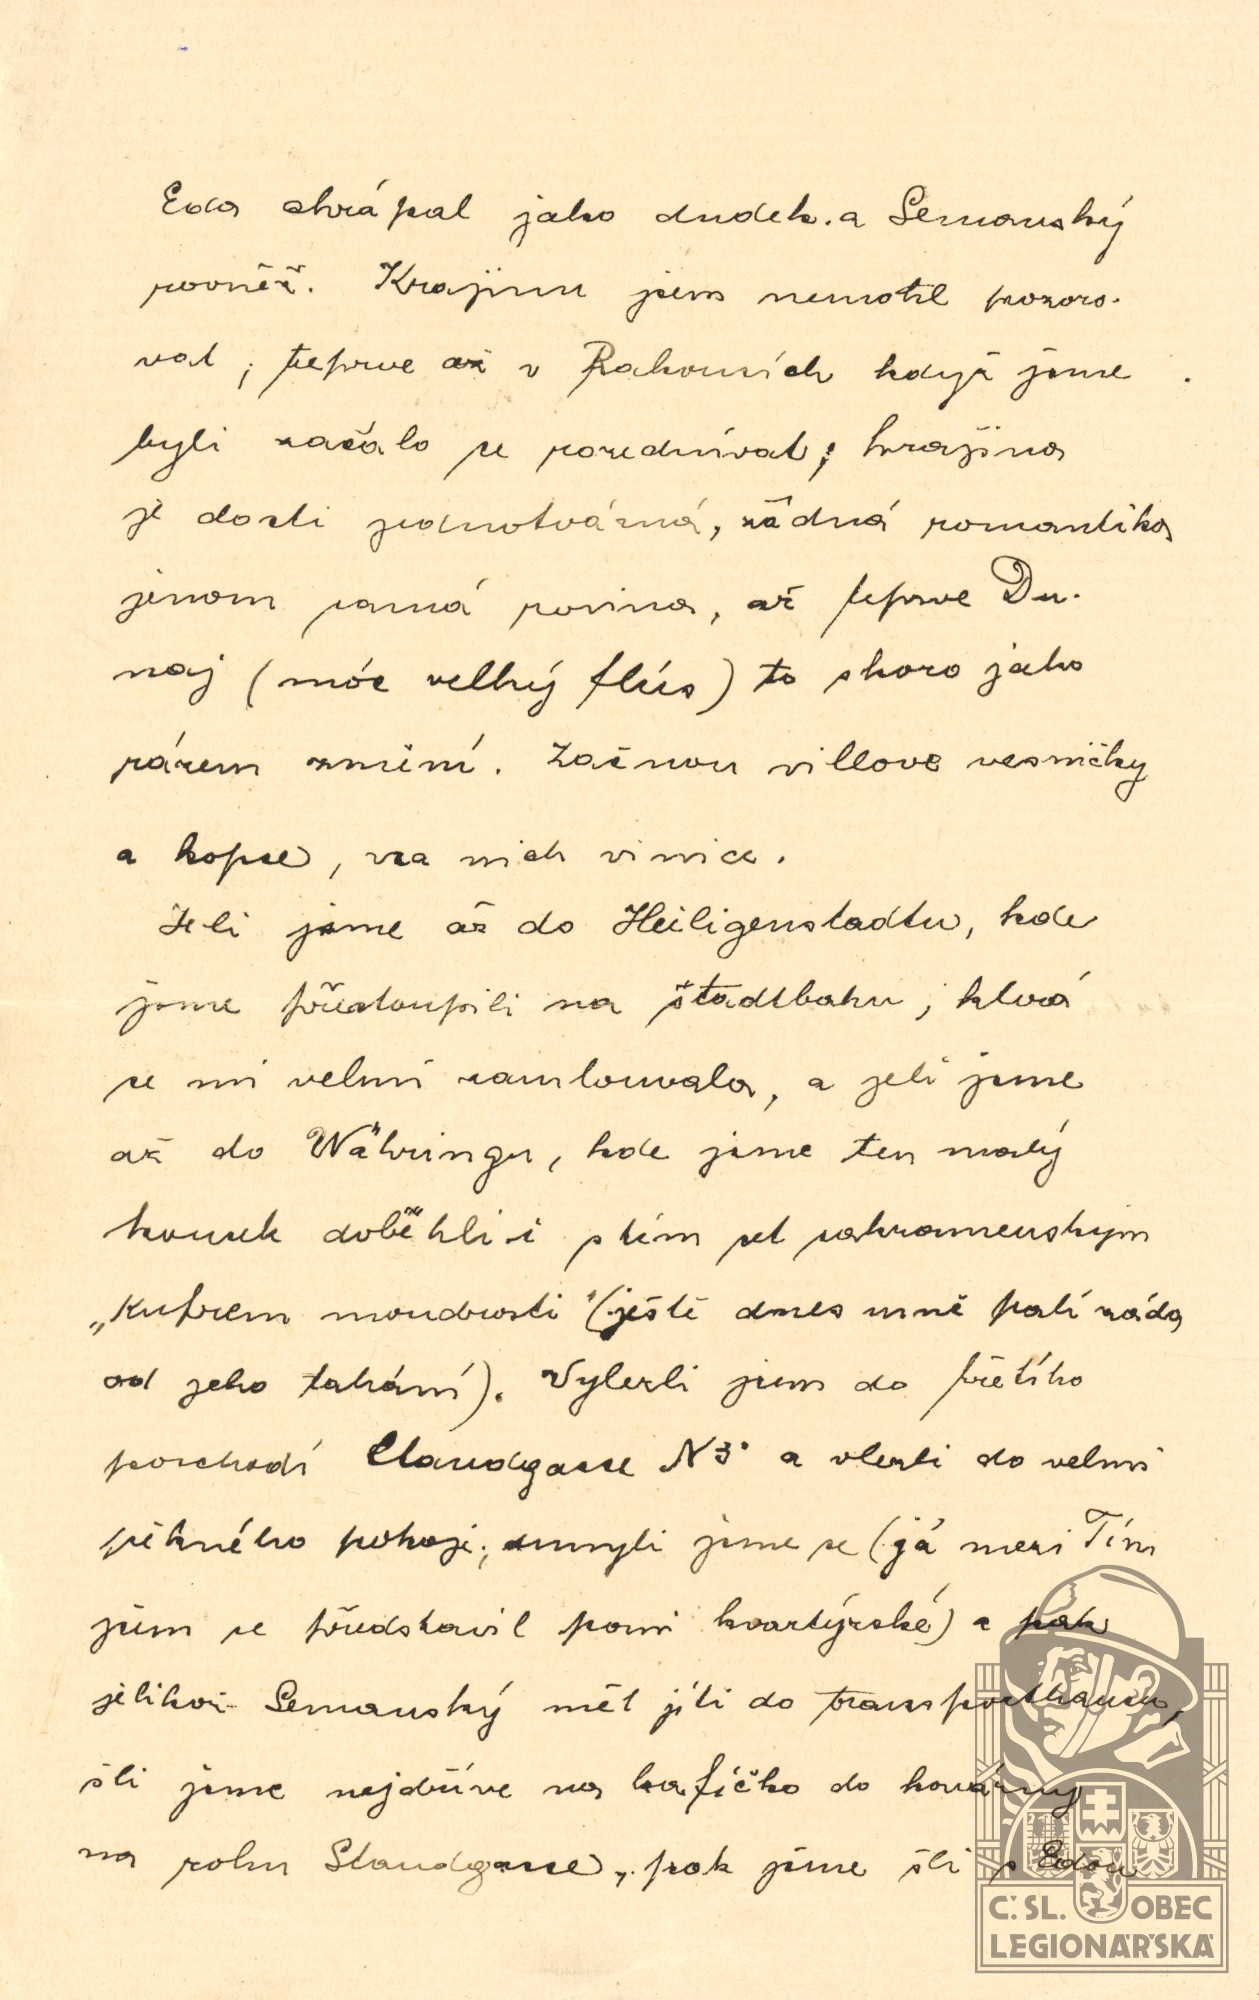 Eda chrápal jako dudek. a Semanský
rovněž. Krajinu jsem nemohl pozoro-
vat, teprve až v Rakousích když jsme
byli začalo se rozednívat; krajina
je dosti jednotvárná, žádná romantika
jenom samá rovina, až teprve Du-
naj (móc velký flús) to skoro jako
rázem změní. Začnou villové vesničky
a kopce, na nich vinice.
Jeli jsme až do Heiligenstadtu, kde
jsme přestoupili na štadtbahu, která
se mi velmi zamlouvala, a jeli jsme
až do Währingu, kde jsme ten malý
kousek doběhli i s tím sakramenským
„Kufrem moudrosti" (ještě dnes mně pálí záda
od jeho tahání). Vylezli jsem do třetího
poschodí Staudgasse N 3 a vlezli do velmi
pěkného pokoje; umyli jsme se (já mezi Tím
jsem se představil paní kvartýrské) a pak
jelikož Semanský měl jíti do transporthausu,
šli jsme nejdříve na kafíčko do kavárny
na rohu Staudgasse, pak jsme šli s Edou
Č. SL. OBEC
LEGIONÁŘSKÁ